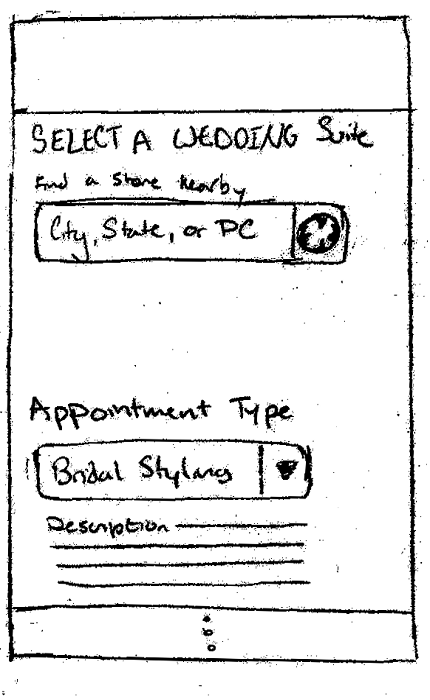 SELECT A WEDDING Suite
Find a Store Nearby
City, State, or PC
Appointment Type
Bridal Styling
Description